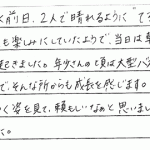 く前日、2人で晴れるように"て
も楽しみにしていたようで、当日は
起きました。年少さんの頃は大型バ
で、そんな所からも成長を感じます。
く姿を見て、頼もしいなぁと思いまし
た。